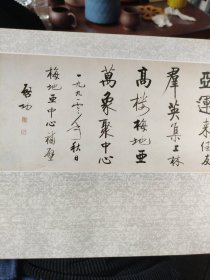 亞運來任友
羣英集上林
高樓梅地亞
萬象聚中心
一九九零年秋日
梅地亞中心補壁
啟功